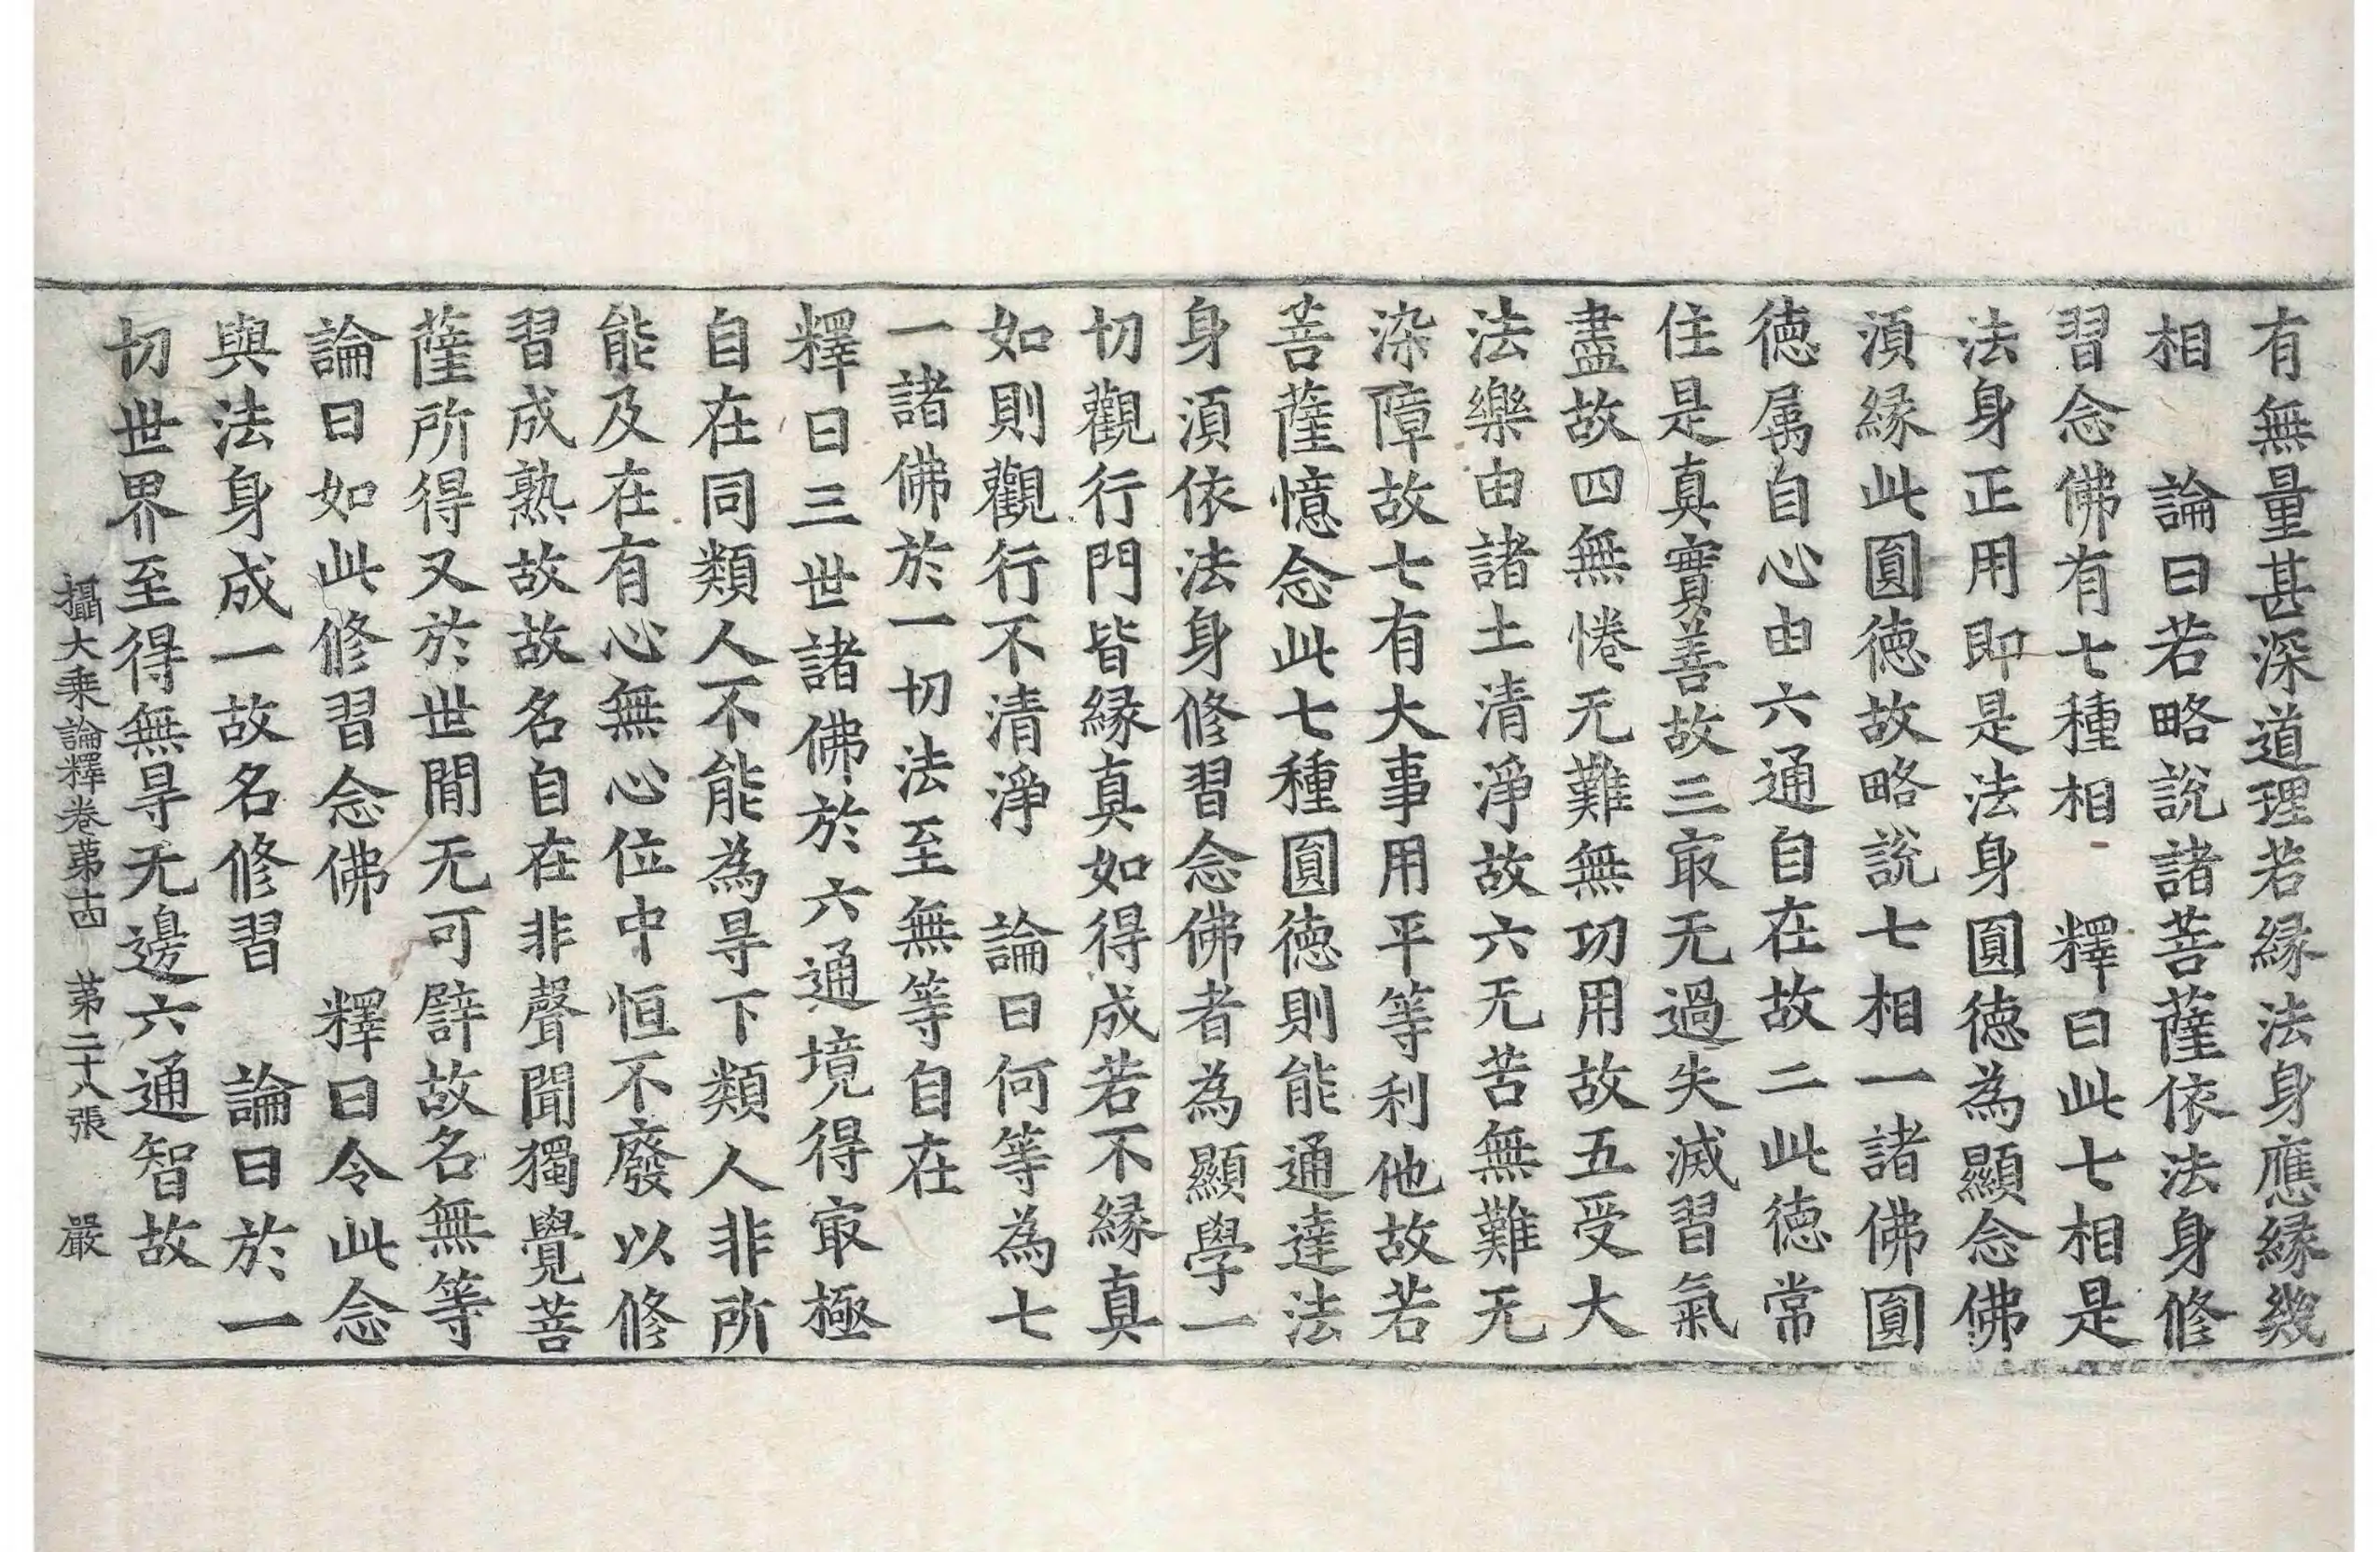 有無量甚深道理若縁法身應縁幾
相　論曰若略說諸菩薩依法身修
習念佛有七種相　釋曰此七相是
法身正用即是法身圓德為顯念佛
湏縁此圓德故略說七相一諸佛圓
德属自心由六通自在故二此德常
住是真實善故三㝡无過失滅習氣
盡故四無惓无難無功用故五受大
法樂由諸土清淨故六无苦無難无
染障故七有大事用平等利他故若
菩薩憶念此七種圓德則能通達法
身湏依法身修習念佛者為顯學一
切觀行門皆縁真如得成若不縁真
如則觀行不清淨　論曰何等為七
一諸佛於一切法至無等自在
釋曰三世諸佛於六通境得㝡極
自在同類人不能為㝵下類人非所
能及在有心無心位中恒不廢以修
習成熟故故名自在非聲聞獨覺菩
薩所得又於世間无可譬故名無等
論曰如此修習念佛　釋曰令此念
與法身成一故名修習　論曰於一
切世界至得無㝵无邊六通智故
攝大乗論釋卷苐十四　苐二十八張　嚴